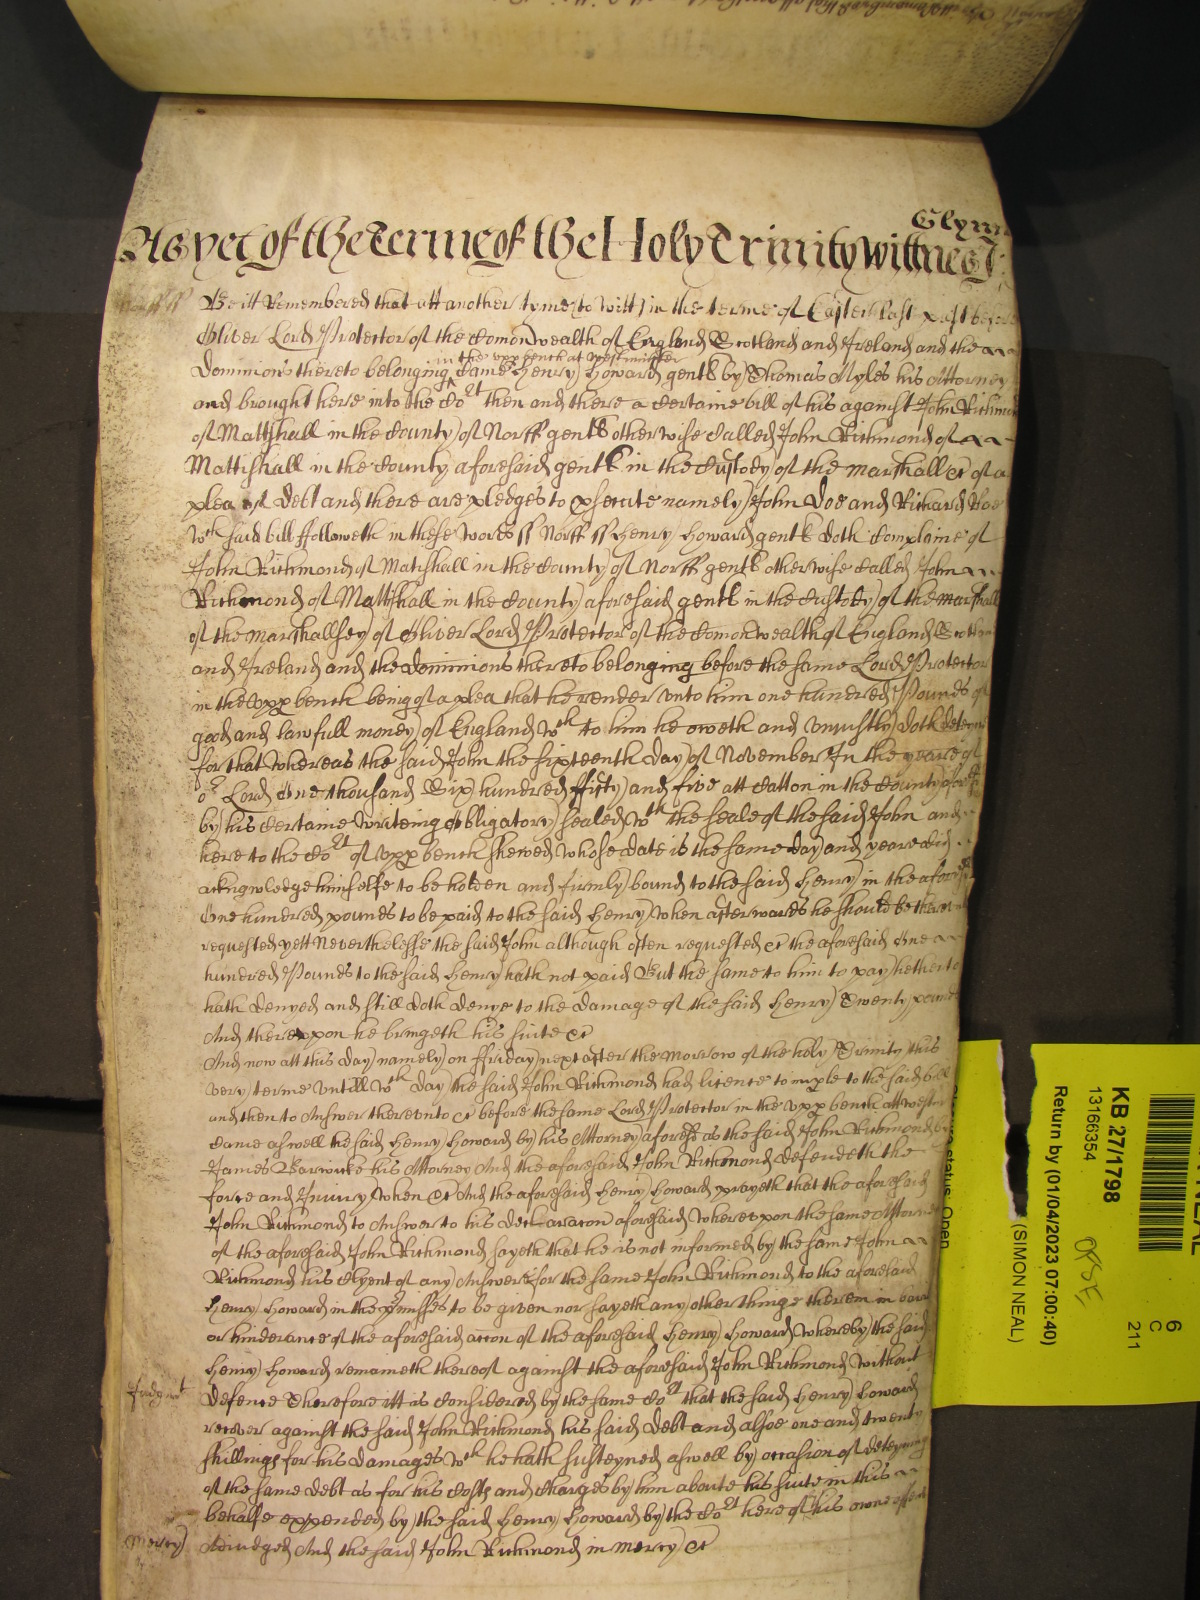 Glynn
As yet of the Terme of the Holy Trinity Wittnes
Norff ss Be itt Remembered that att another tyme to witt in the terme of Easter last past before
Oliver Lord Protector of the Comonwealth of England Scotland and Ireland and the
in the upp bench at Westminster
Dominions thereto belonging came Henry Howard gent by Thomas Myles his Attorney
and brought here into the Cort then and there a certaine bill of his against John Richmond
of Mattshall in the County of Norff gent otherwise called John Richmond of
Mattishall in the County aforesaid gent in the Custody of the marshall &c of a
plea of Debt and there are pledges to psecute namely John Doe and Richard Roe
Wch said bill followeth in these words ss Norff ss Henry Howard gent doth Complaine of
John Richmond of Matishall in the County of Norff gent otherwise called John
Richmond of Mattshall in the County aforesaid gent in the Custody of the marshall
of the marshallsey of Oliver Lord Protector of the Comonwealth of England Scotland
and Ireland and the dominions thereto belonging before the same Lord Protector
in the upp bench being of a plea that he render unto him one hundred Pounds of
good and lawfull money of England wch to him he oweth and uniustly doth deteine
for that whereas the said John the sixteenth day of November In the yeare of
or Lord One thousand Six hundred fifty and five att Catton in the County afores
by his certaine writeing obligatory sealed wth the seale of the said John and
here to the Cort of upp bench shewed whose date is the same day and yeare did
acknowledge himselfe to be holden and firmly bound to the said Henry in the aforesd
One hundred pounds to be paid to the said Henry when afterwards he should be thereunto
requested yett Neverthelesse the said John although often requested &c the aforesaid One
hundred Pounds to the said Henry hath not paid But the same to him to pay hetherto
hath denyed and still doth denye to the damage of the said Henry Twenty pounds
And thereupon he bringeth his suite &c
And now att this day namely on ffriday next after the Morrow of the holy Trinity this
very terme untill wch day the said John Richmond had licence to imple to the said bill
and then to Answer thereunto &c before the same Lord Protector in the upp bench att westmr
came aswell the said Henry Howard by his Attorney aforesd as the said John Richmond by
James Barwicke his Attorney And the aforesaid John Richmond defendeth the
force and Iniury when &c And the aforesaid Henry Howard prayeth that the aforesaid
John Richmond to Answer to his declaracon aforesaid whereupon the same Attorney
of the aforesaid John Richmond sayeth that he is not informed by the same John
Richmond his Clyent of any Answere for the same John Richmond to the aforesaid
Henry Howard in the pmisses to be given nor sayeth any other thinge therein in barr
or hinderance of the aforesaid accon of the aforesaid Henry Howard whereby the said
Henry Howard remaineth thereof against the aforesaid John Richmond without
Judgmt defence Therefore itt is Considered by the same Cort that the said Henry Howard
recover against the said John Richmond his said Debt and alsoe one and twenty
shillings for his damages wch he hath susteyned aswell by occasion of deteyning
of the same debt as for his Costs and Charges by him about his suite in this
behalfe expended by the said Henry Howard by the Cort here of his owne assent
Mercy Adiudged And the said John Richmond in mercy &c
KB 27/1798
13166354
Return by (01/04/2023 07:00:40)
(SIMON NEAL)
6
C
211
status: Open